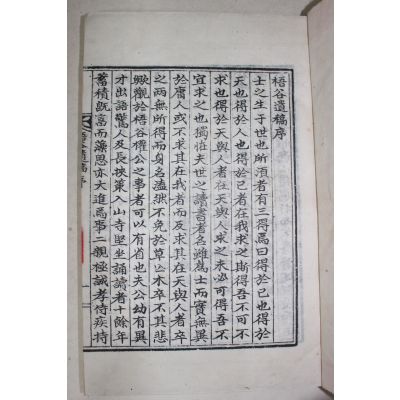 梧谷遺稿序
士之生于世也所須者有三得焉曰得於己也得於
天也得於人也得於己者在我求之斯得吾不可不
求也得於天與人者在天與人求之未必可得吾不
宜求之也獨恠夫世之讀書者名雖爲士而實無異
於庸人或不求其在我者而反求其在天與人者卒
之兩無所得而身名溘然不免於草亡木卒不其悲
歟觀於梧谷權公之事者可以有省也夫公幼有異
才出語驚人及長挾策入山寺堅坐誦讀者十餘年
蓄積旣富而藻思亦大進焉事二親極誠孝侍疾持
梧谷遺稿序